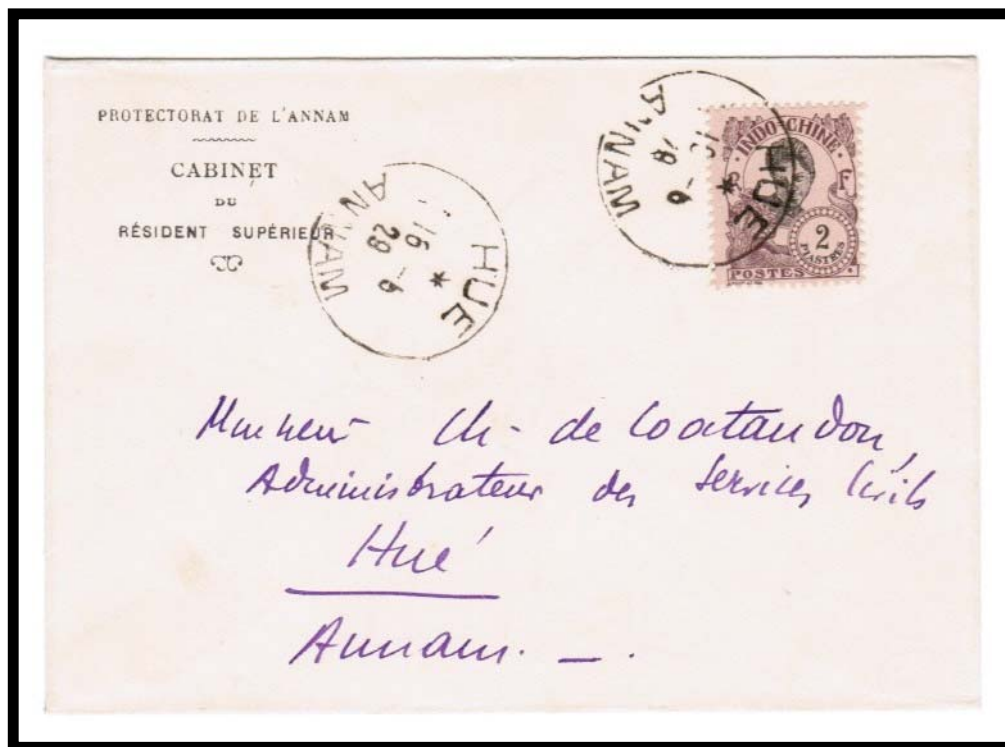 PROTECTORAT DE L'ANNAM
CABINET
DU
RÉSIDENT SUPÉRIEUR
HUE
ANNAM
16
29 -6
HUE
ANNAM
-6
INDO-CHINE
R F
2
PIASTRES
POSTES
Monsieur Ch- de Coatandon,
Administrateur des Services Civils
Hué
Annam. - .